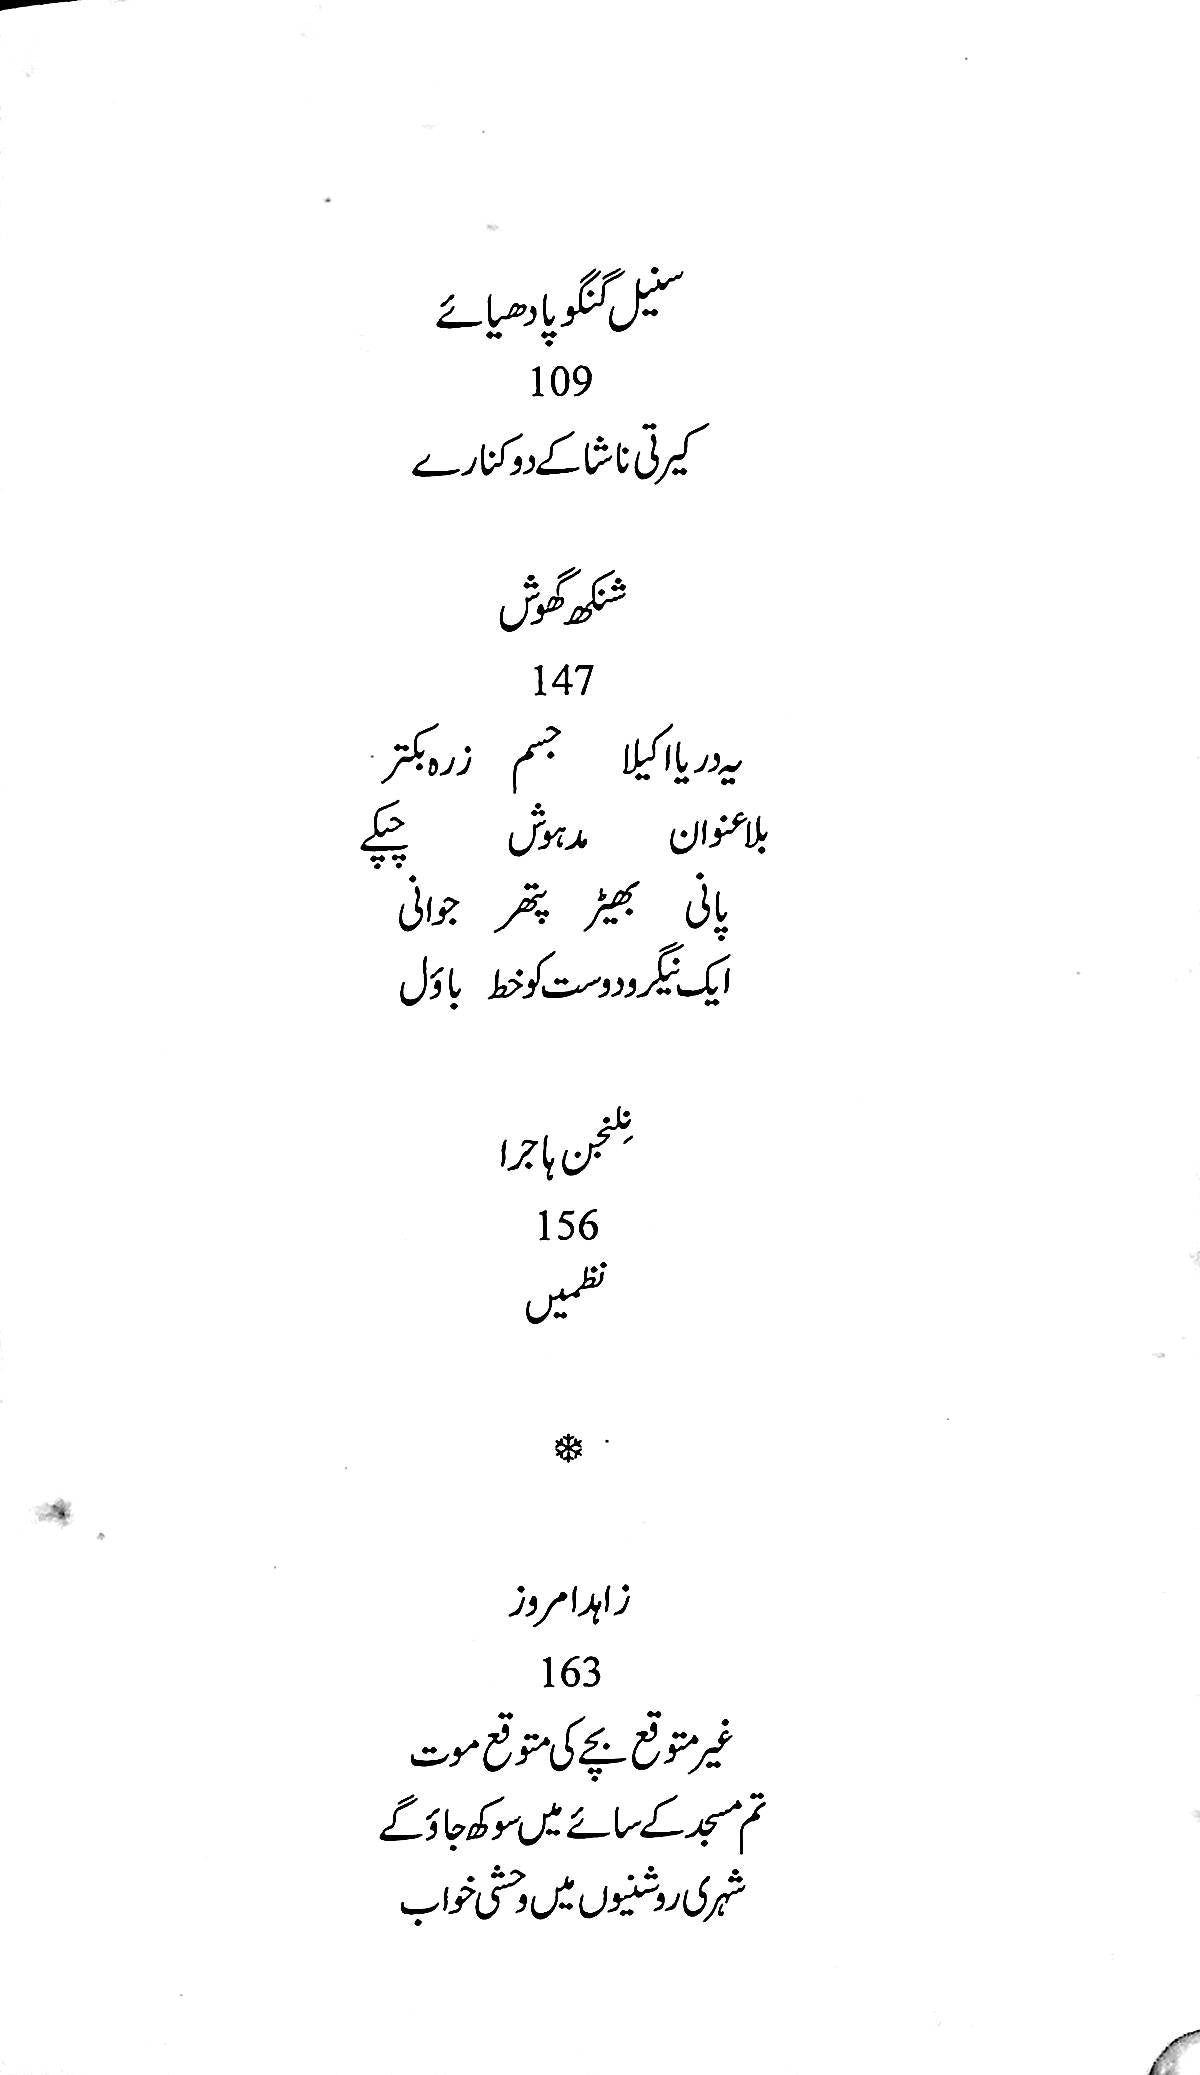 سنیل گنگوپادھیائے
109
کیرتی ناشا کے دو کنارے
شنکھ گھوش
147
یہ دریا اکیلا جسم زرہ بکتر
بلاعنوان مدہوش چپکے
پانی بھیڑ پتھر جوانی
ایک نیگرو دوست کو خط باؤل
نِلنجن ہاجرا
156
نظمیں
زاہد امروز
163
غیر متوقع بچے کی متوقع موت
تم مسجد کے سائے میں سوکھ جاؤ گے
شہری روشنیوں میں وحشی خواب